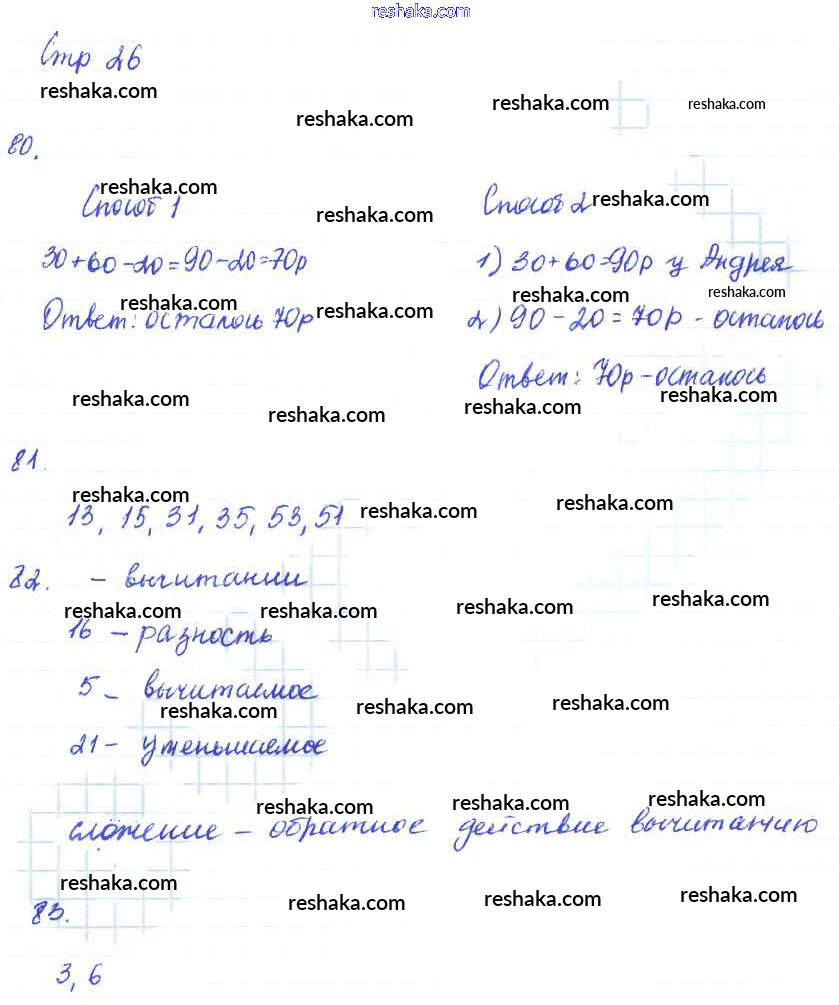 reshaka.com
Стр 26
reshaka.com
reshaka.com
reshaka.com
reshaka.com
80.
reshaka.com
reshaka.com
reshaka.com
Способ 1
30+60-20=90-20=70р
Ответ: осталось 70р
reshaka.com
reshaka.com
Способ 2
1) 30+60=90р у Андрея
reshaka.com
reshaka.com
2) 90-20=70р - осталось
Ответ: 70р-осталось
reshaka.com
reshaka.com
reshaka.com
reshaka.com
81.
reshaka.com
reshaka.com
reshaka.com
13, 15, 31, 35, 53, 51
82. - вычитании
reshaka.com
reshaka.com
reshaka.com
reshaka.com
16 - разность
5 - вычитаемое
reshaka.com
reshaka.com
reshaka.com
21- уменьшаемое
reshaka.com
reshaka.com
reshaka.com
сложение - обратное действие вычитанию
reshaka.com
reshaka.com
reshaka.com
reshaka.com
83.
3, 6